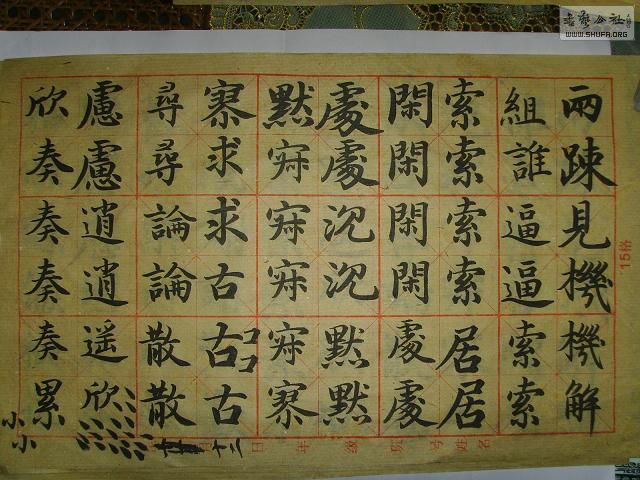 兩疎見機機解
組誰逼逼索索
索索索索居居
閑閑閑閑處處
處處沉沉默默
默寂寂寂寂寮
寮求求古古古
尋尋論論散散
慮慮逍逍遥欣
欣奏奏奏奏累
小小
十二日
年
级
班
号
姓名
15格
書藝公社
WWW.SHUFA.ORG